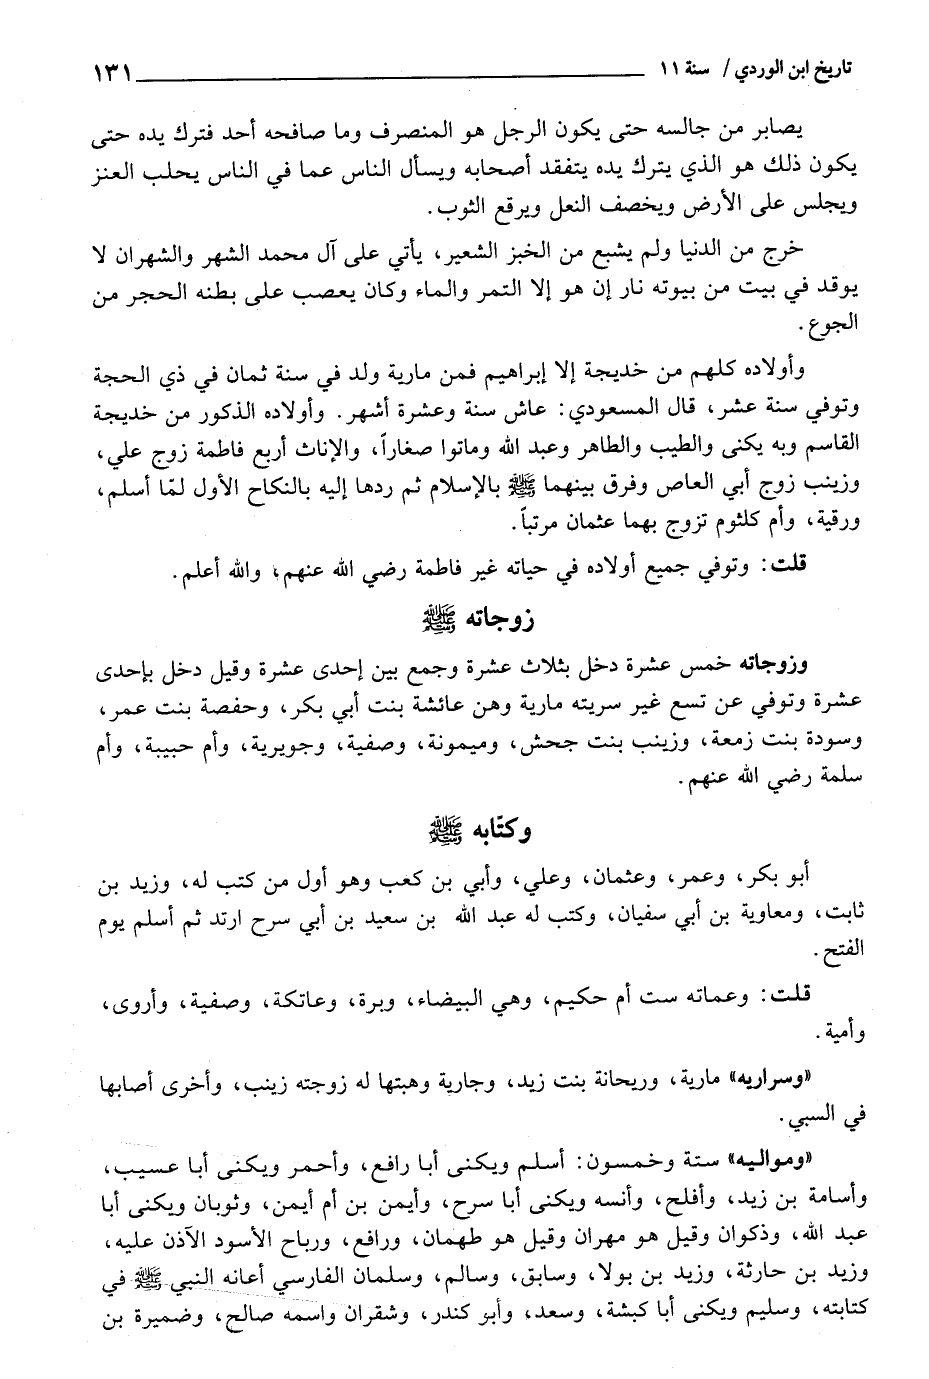 تاريخ ابن الوردي / سنة ١١ ١٣١
يصابر من جالسه حتى يكون الرجل هو المنصرف وما صافحه أحد فترك يده حتى
يكون ذلك هو الذي يترك يده يتفقد أصحابه ويسأل الناس عما في الناس يحلب العنز
ويجلس على الأرض ويخصف النعل ويرقع الثوب.
خرج من الدنيا ولم يشبع من الخبز الشعير، يأتي على آل محمد الشهر والشهران لا
يوقد في بيت من بيوته نار إن هو إلا التمر والماء وكان يعصب على بطنه الحجر من
الجوع.
وأولاده كلهم من خديجة إلا إبراهيم فمن مارية ولد في سنة ثمان في ذي الحجة
وتوفي سنة عشر، قال المسعودي: عاش سنة وعشرة أشهر. وأولاده الذكور من خديجة
القاسم وبه يكنى والطيب والطاهر وعبد الله وماتوا صغاراً، والإناث أربع فاطمة زوج علي،
وزينب زوج أبي العاص وفرق بينهما ﷺ بالإسلام ثم ردها إليه بالنكاح الأول لمّا أسلم،
ورقية، وأم كلثوم تزوج بهما عثمان مرتباً.
قلت: وتوفي جميع أولاده في حياته غير فاطمة رضي الله عنهم، والله أعلم.
زوجاته ﷺ
وزوجاته خمس عشرة دخل بثلاث عشرة وجمع بين إحدى عشرة وقيل دخل بإحدى
عشرة وتوفي عن تسع غير سريته مارية وهن عائشة بنت أبي بكر، وحفصة بنت عمر،
وسودة بنت زمعة، وزينب بنت جحش، وميمونة، وصفية، وجويرية، وأم حبيبة، وأم
سلمة رضي الله عنهم.
وكتّابه ﷺ
أبو بكر، وعمر، وعثمان، وعلي، وأبي بن كعب وهو أول من كتب له، وزيد بن
ثابت، ومعاوية بن أبي سفيان، وكتب له عبد الله بن سعيد بن أبي سرح ارتد ثم أسلم يوم
الفتح.
قلت: وعماته ست أم حكيم، وهي البيضاء، وبرة، وعاتكة، وصفية، وأروى،
وأمية.
«وسراريه» مارية، وريحانة بنت زيد، وجارية وهبتها له زوجته زينب، وأخرى أصابها
في السبي.
«ومواليه» ستة وخمسون: أسلم ويكنى أبا رافع، وأحمر ويكنى أبا عسيب،
وأسامة بن زيد، وأفلح، وأنسه ويكنى أبا سرح، وأيمن بن أم أيمن، وثوبان ويكنى أبا
عبد الله، وذكوان وقيل هو مهران وقيل هو طهمان، ورافع، ورباح الأسود الآذن عليه،
وزيد بن حارثة، وزيد بن بولا، وسابق، وسالم، وسلمان الفارسي أعانه النبي ﷺ في
كتابته، وسليم ويكنى أبا كبشة، وسعد، وأبو كندر، وشقران واسمه صالح، وضميرة بن